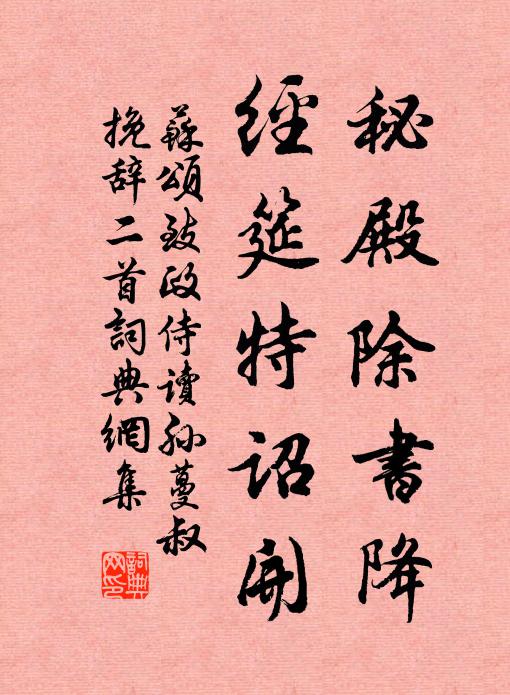 秘殿除書降
經筵特詔開
蘇頌致政侍讀孙蔓叔
挽辞二首詞典網集
詞典
网印